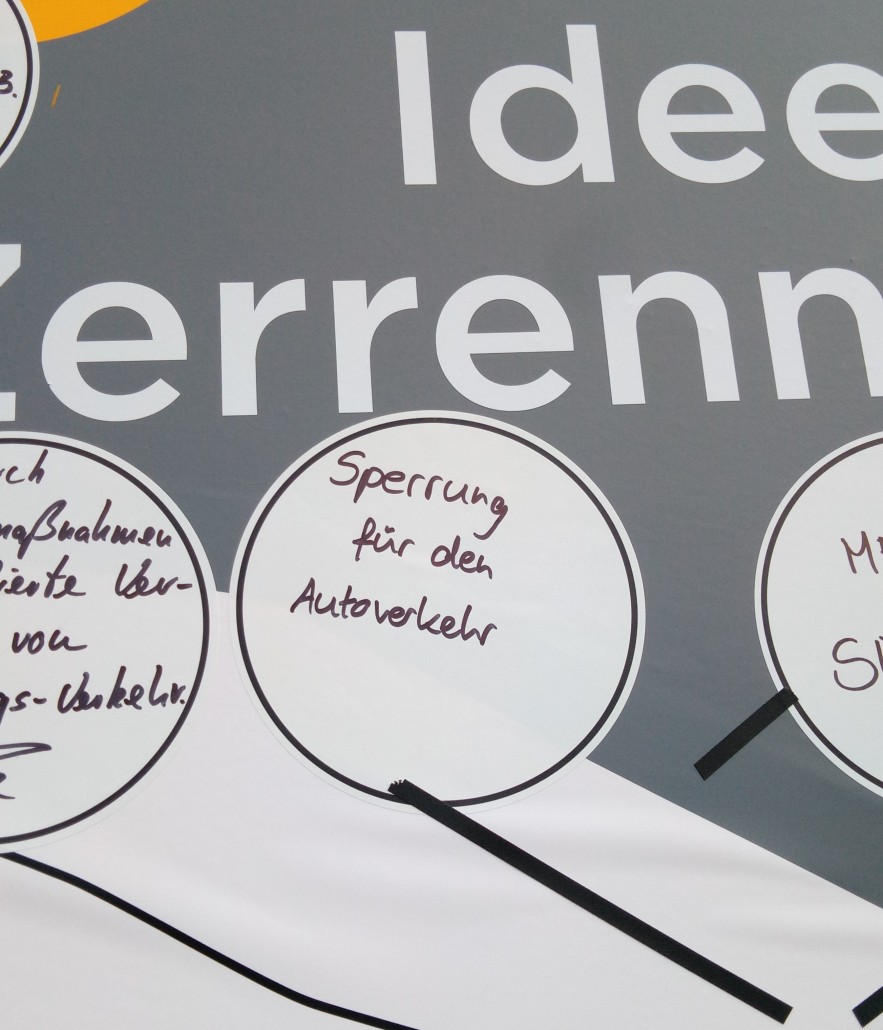 Idee
Zerrenn
maßnahmen
Ver-
von
gs-Verkehr.
Sperrung
für den
Autoverkehr